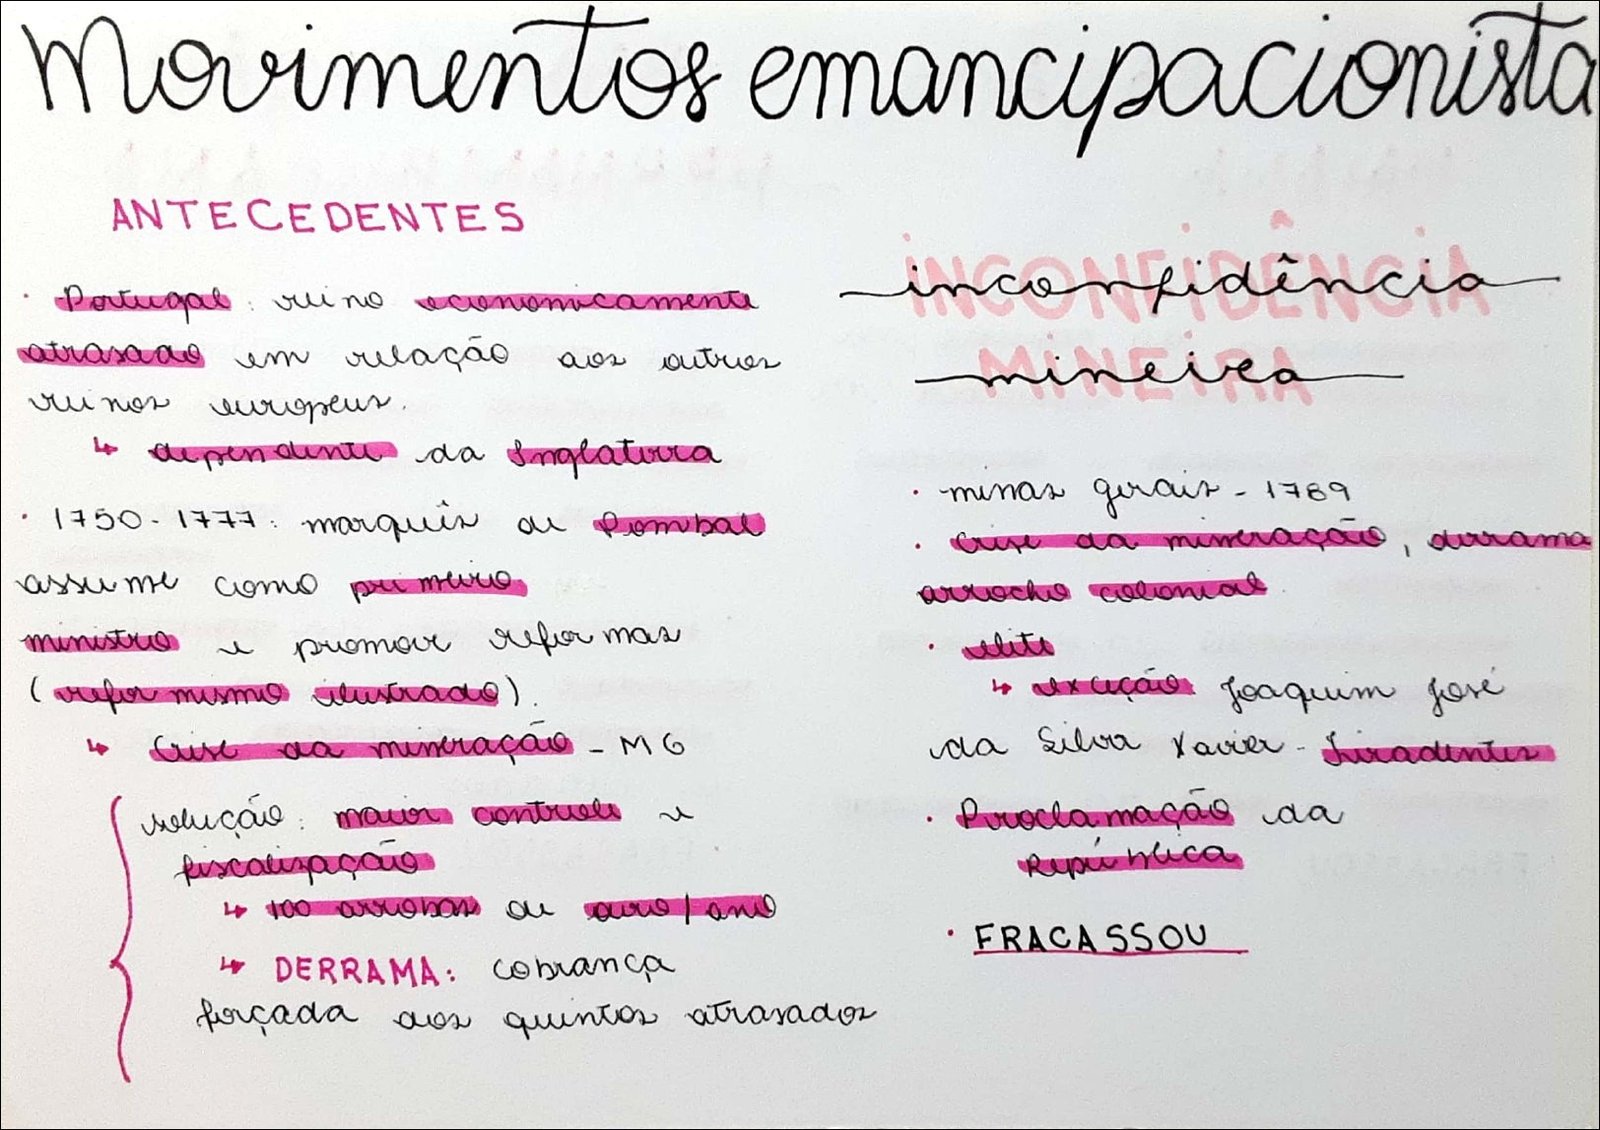 Movimentos emancipacionista
ANTECEDENTES
· Portugal: reino economicamente
atrasado em relação aos outros
reinos europeus.
↳ dependente da Inglaterra
· 1750 - 1777: marquês de Pombal
assume como primeiro
ministro e promove reformas
(reformismo ilustrado).
↳ Crise da mineração - MG
solução: maior controle e
fiscalização
↳ 100 arrobas de ouro/ano
↳ DERRAMA: cobrança
forçada dos quintos atrasados
inconfidência
mineira
· minas gerais - 1789
· Crise da mineração, derrama
arrocho colonial
· elite
↳ execução: Joaquim José
da Silva Xavier - Tiradentes
· Proclamação da
República
· FRACASSOU